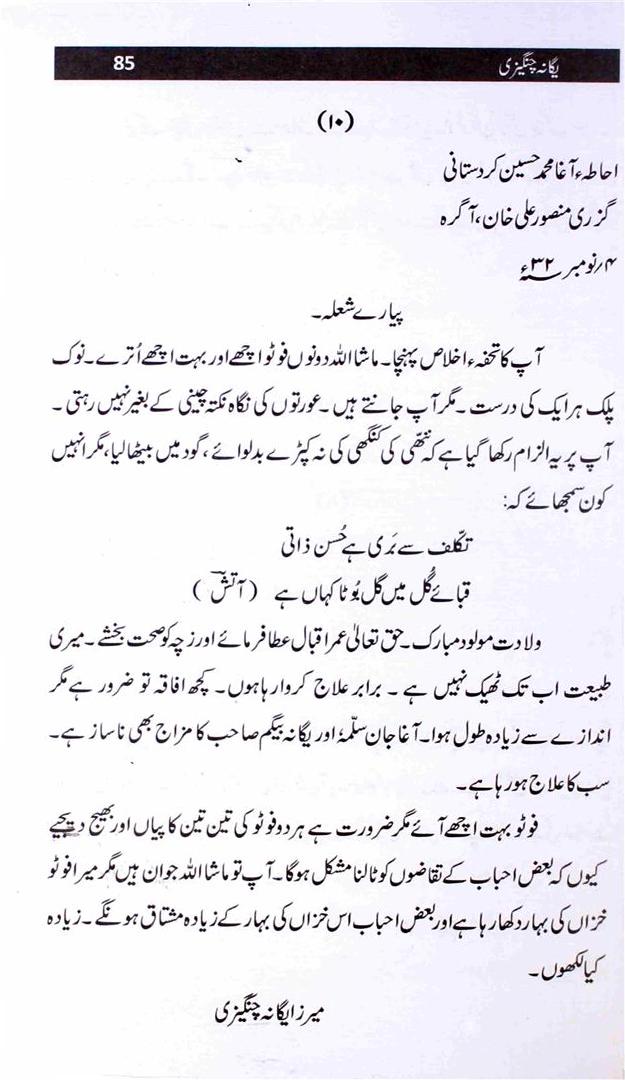 یگانہ چنگیزی 85
(۱۰)
احاطہء آغا محمد حسین کردستانی
گزری منصور علی خان، آگرہ
۴/ نومبر ۳۲ء
پیارے شعلہ۔
آپ کا تحفہء اخلاص پہنچا۔ ماشا اللہ دونوں فوٹو اچھے اور بہت اچھے اُترے۔ نوک
پلک ہر ایک کی درست۔ مگر آپ جانتے ہیں۔ عورتوں کی نگاہ نکتہ چینی کے بغیر نہیں رہتی۔
آپ پر یہ الزام رکھا گیا ہے کہ ننھی کی کنگھی کی نہ کپڑے بدلوائے، گود میں بیٹھا لیا، مگر انہیں
کون سمجھائے کہ:
تکلّف سے بَری ہے حُسن ذاتی
قبائے گُل میں گل بُوٹا کہاں ہے (آتش)
ولادت مولود مبارک۔ حق تعالیٰ عمر اقبال عطا فرمائے اور زچہ کو صحت بخشے۔ میری
طبیعت اب تک ٹھیک نہیں ہے۔ برابر علاج کروا رہا ہوں۔ کچھ افاقہ تو ضرور ہے مگر
اندازے سے زیادہ طول ہوا۔ آغا جان سلّمہٗ اور یگانہ بیگم صاحب کا مزاج بھی ناساز ہے۔
سب کا علاج ہو رہا ہے۔
فوٹو بہت اچھے آئے مگر ضرورت ہے ہر دو فوٹو کی تین تین کاپیاں اور بھیج دیجیے
کیوں کہ بعض احباب کے تقاضوں کو ٹالنا مشکل ہوگا۔ آپ تو ماشا اللہ جوان ہیں مگر میرا فوٹو
خزاں کی بہار دکھا رہا ہے اور بعض احباب اس خزاں کی بہار کے زیادہ مشتاق ہونگے۔ زیادہ
کیا لکھوں۔
میرزا یگانہ چنگیزی